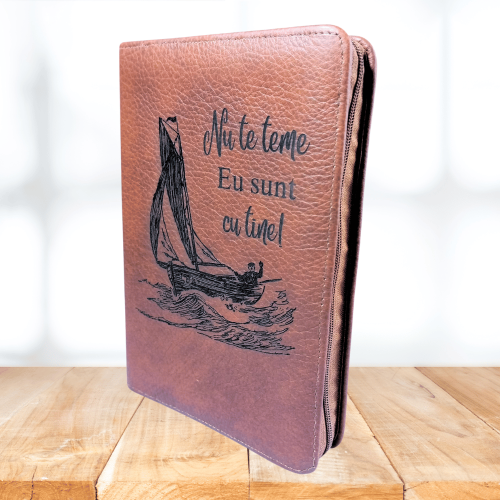 Nu te teme
Eu sunt
cu tine!